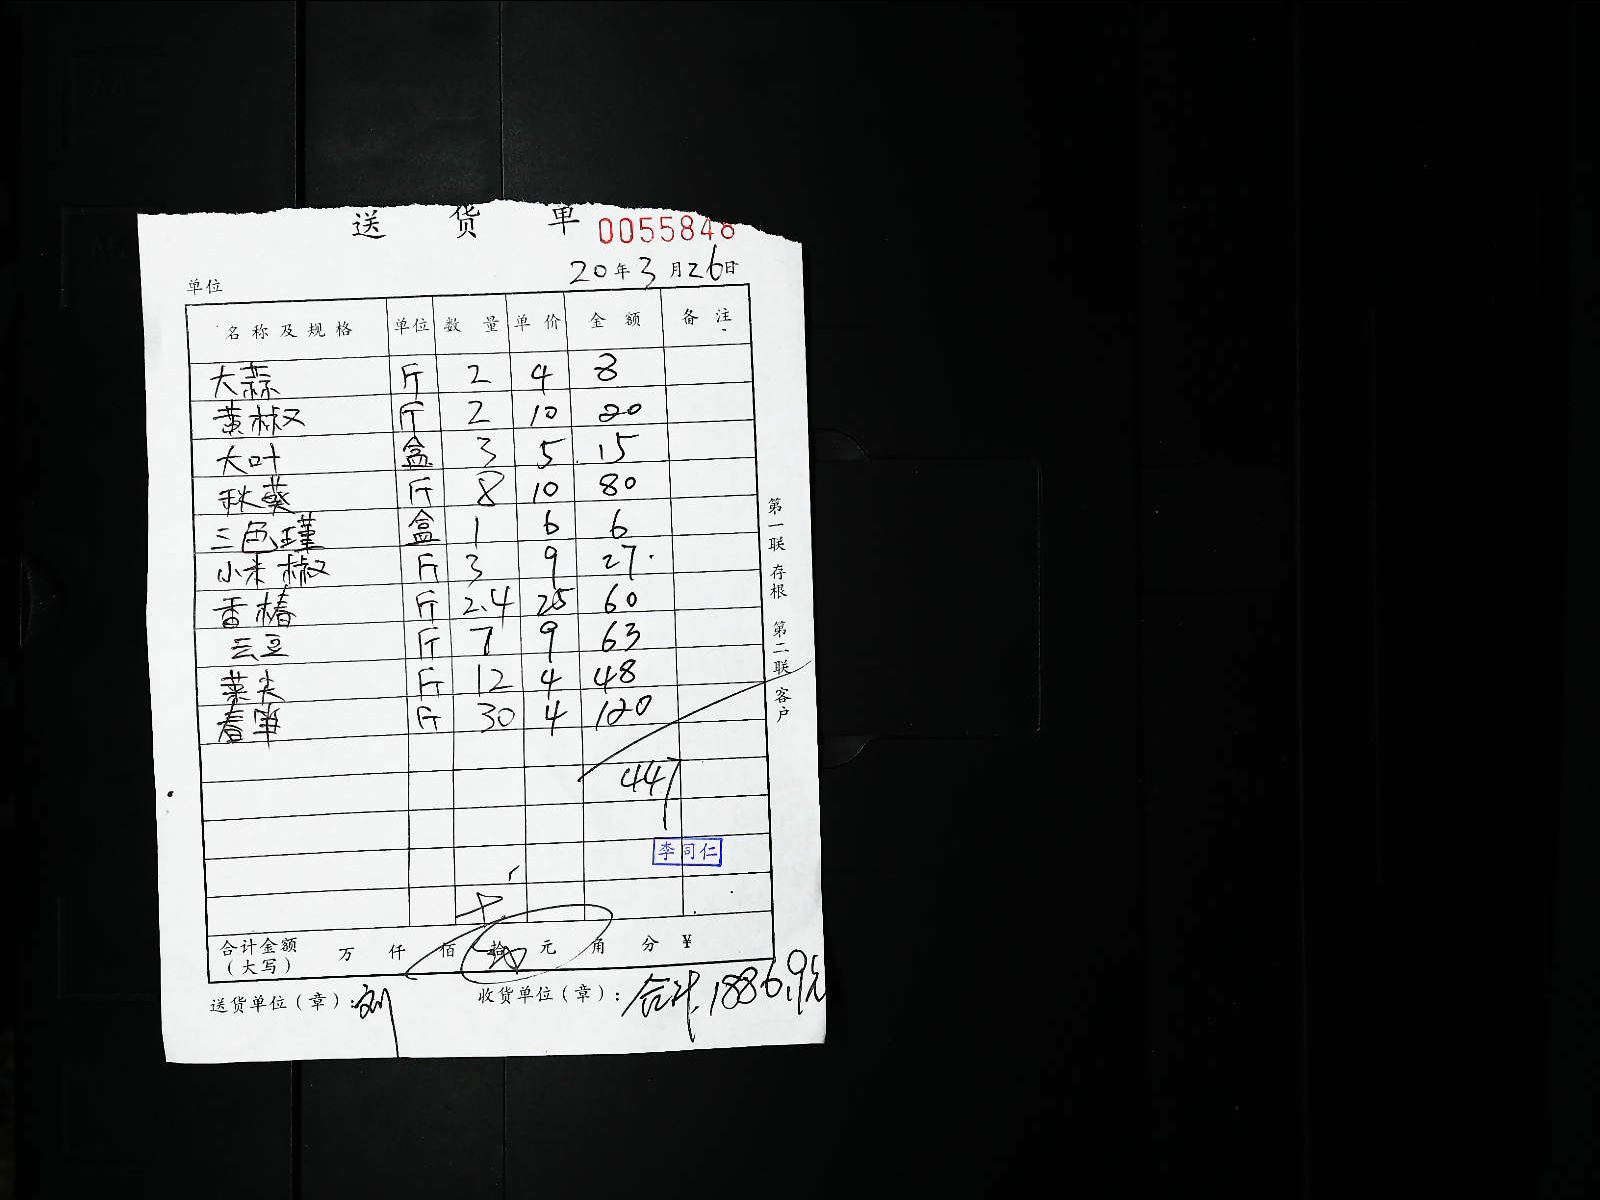 送货单 0055848
20年3月26日
单位
名称及规格 单位 数量 单价 金额 备注
大蒜 斤 2 4 8
黄椒 斤 2 10 20
大叶 盒 3 5 15
秋葵 斤 8 10 80
三色堇 盒 1 6 6
小米椒 斤 3 9 27.
香椿 斤 2.4 25 60
云豆 斤 7 9 63
菜尖 斤 12 4 48
春笋 斤 30 4 120
447
李同仁
合计金额（大写） 万 仟 佰 拾 元 角 分 ¥
送货单位（章）：刘 收货单位（章）：合计.1886.9元
第一联存根 第二联客户